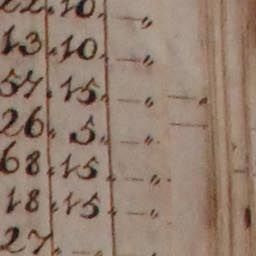 22.10.—"
13.10.—"
57.15.—"
26.5.—"
68.15.—"
18.15.—"
27.—